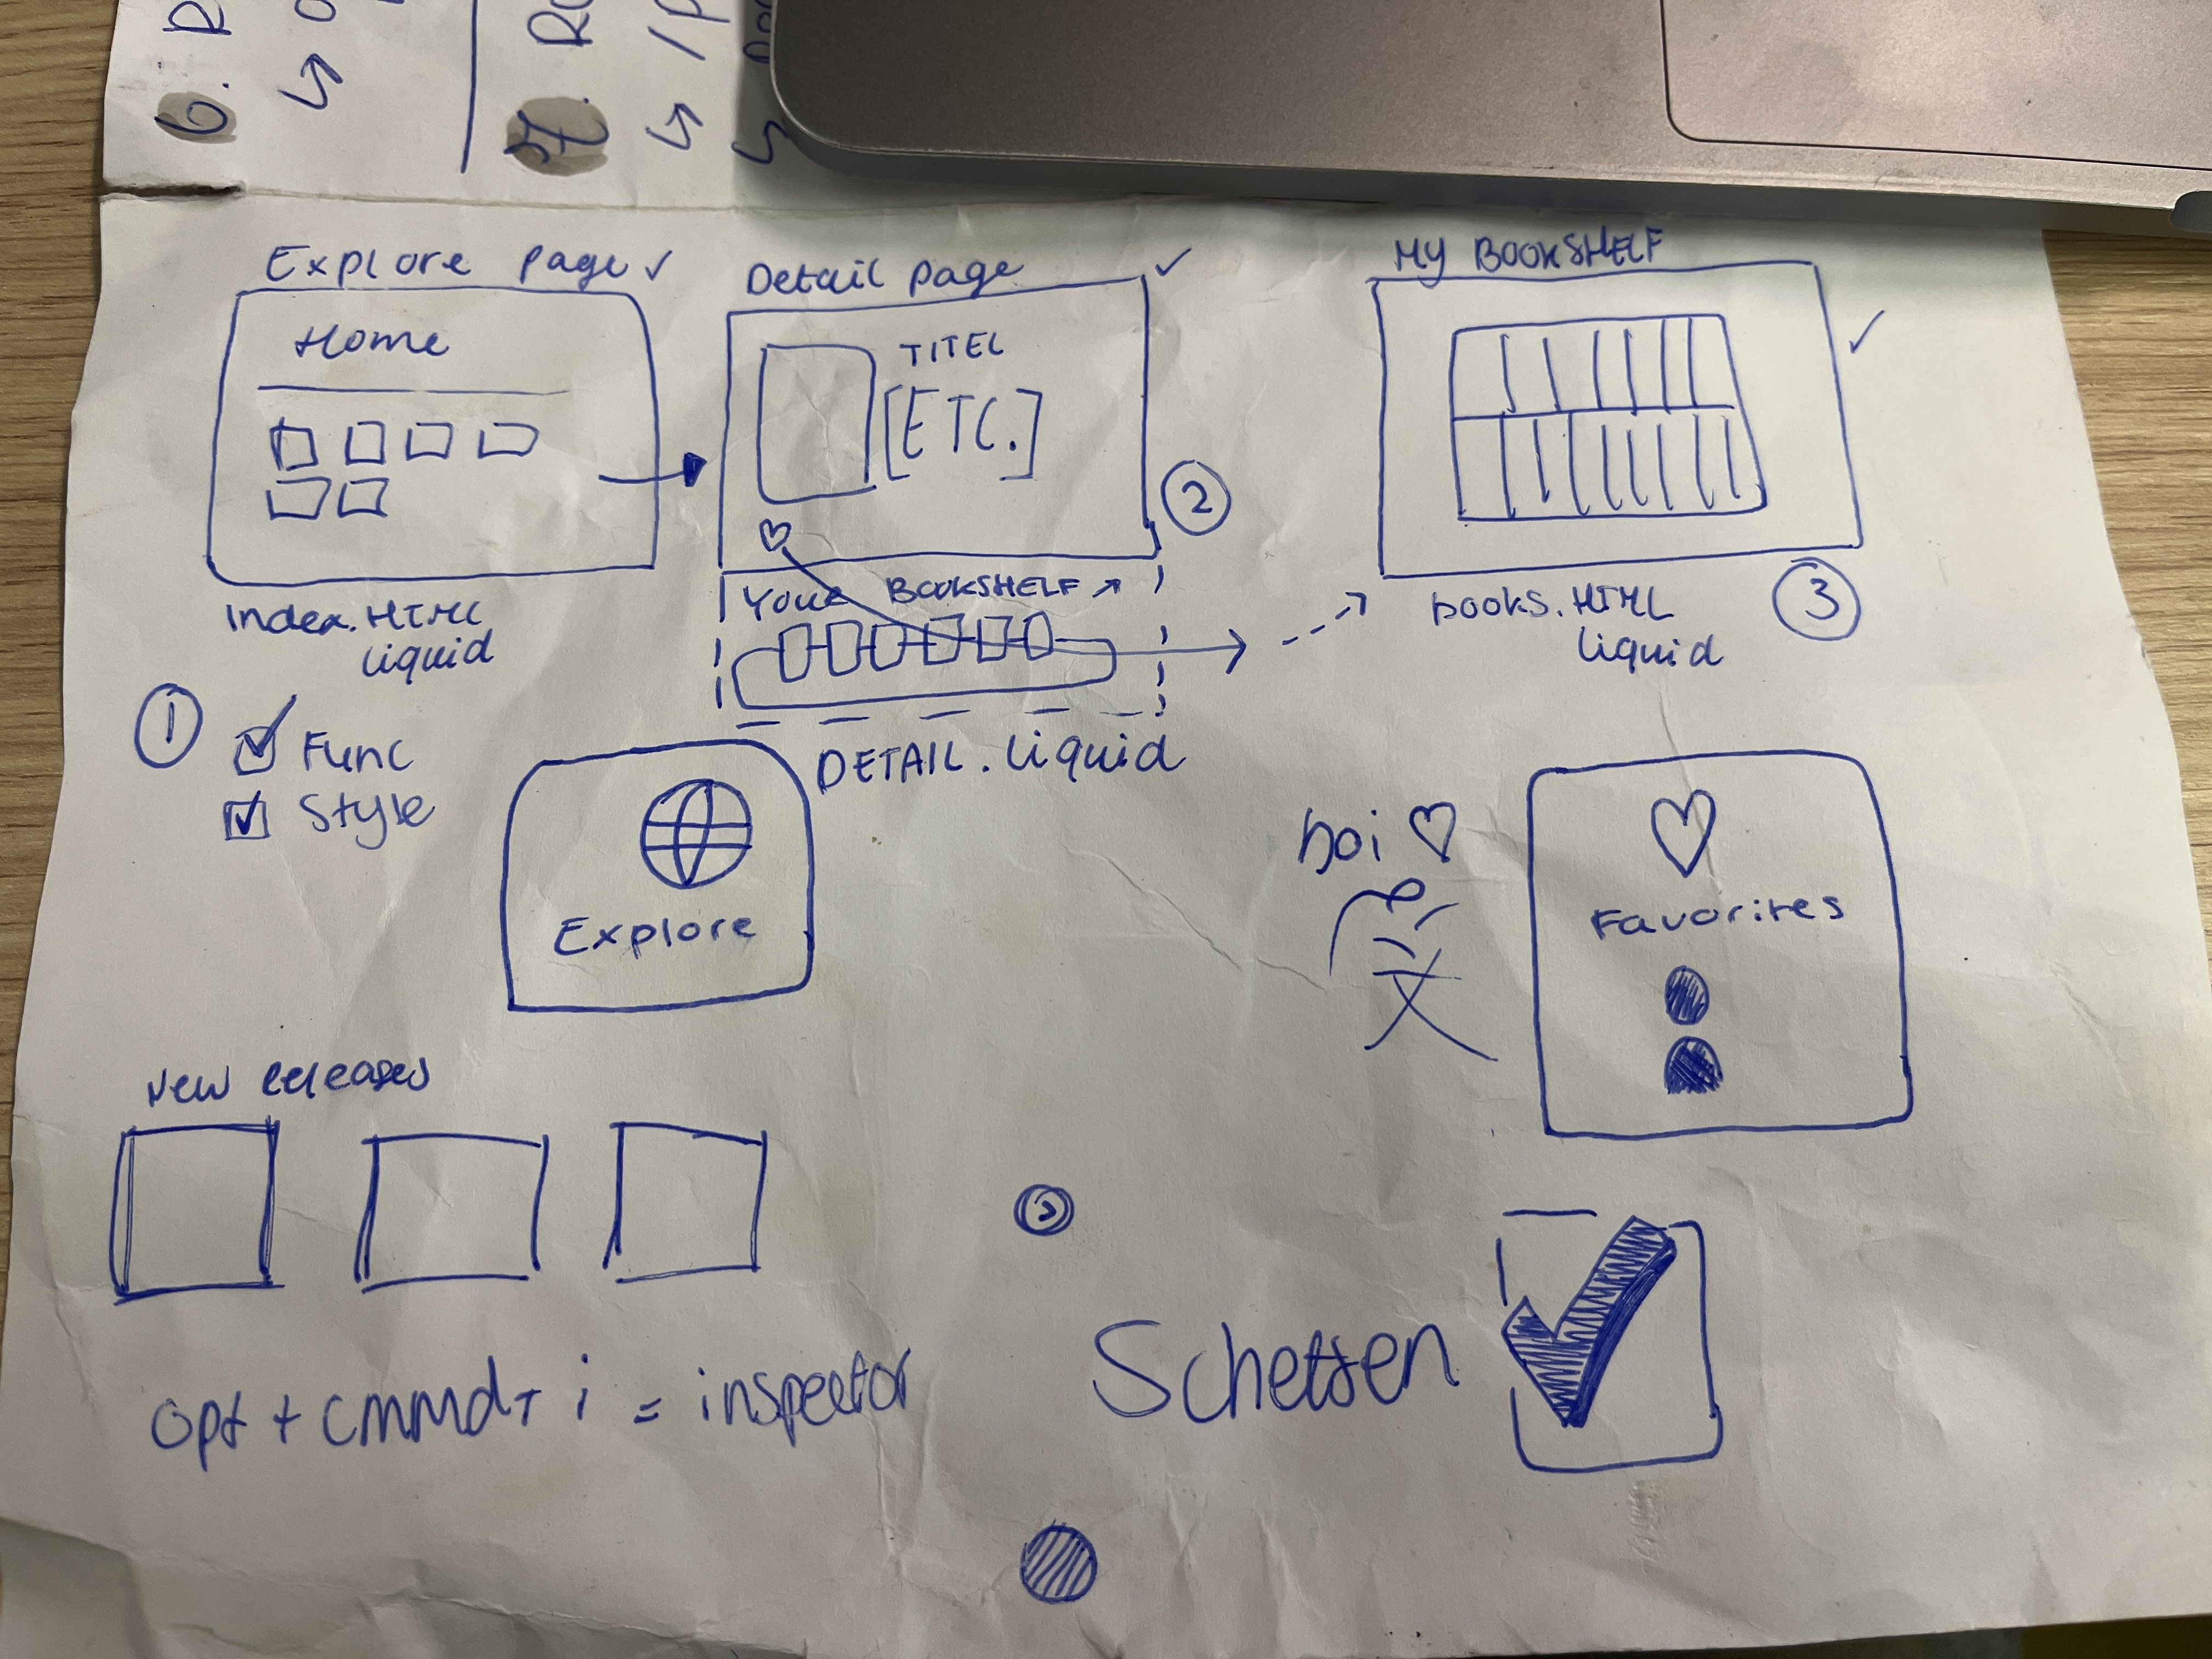 6. R
7. R
↳ /P
Explore page ✓
Home
Index.HTML
liquid
Detail page ✓
TITEL
[ETC.]
♡
Your BOOKSHELF ↗
DETAIL.liquid
②
MY BOOKSHELF ✓
books.HTML
liquid
③
①
☑ Func
☑ Style
Explore
♡
Favorites
New releases
opt + cmmd + i = inspector
Schetsen